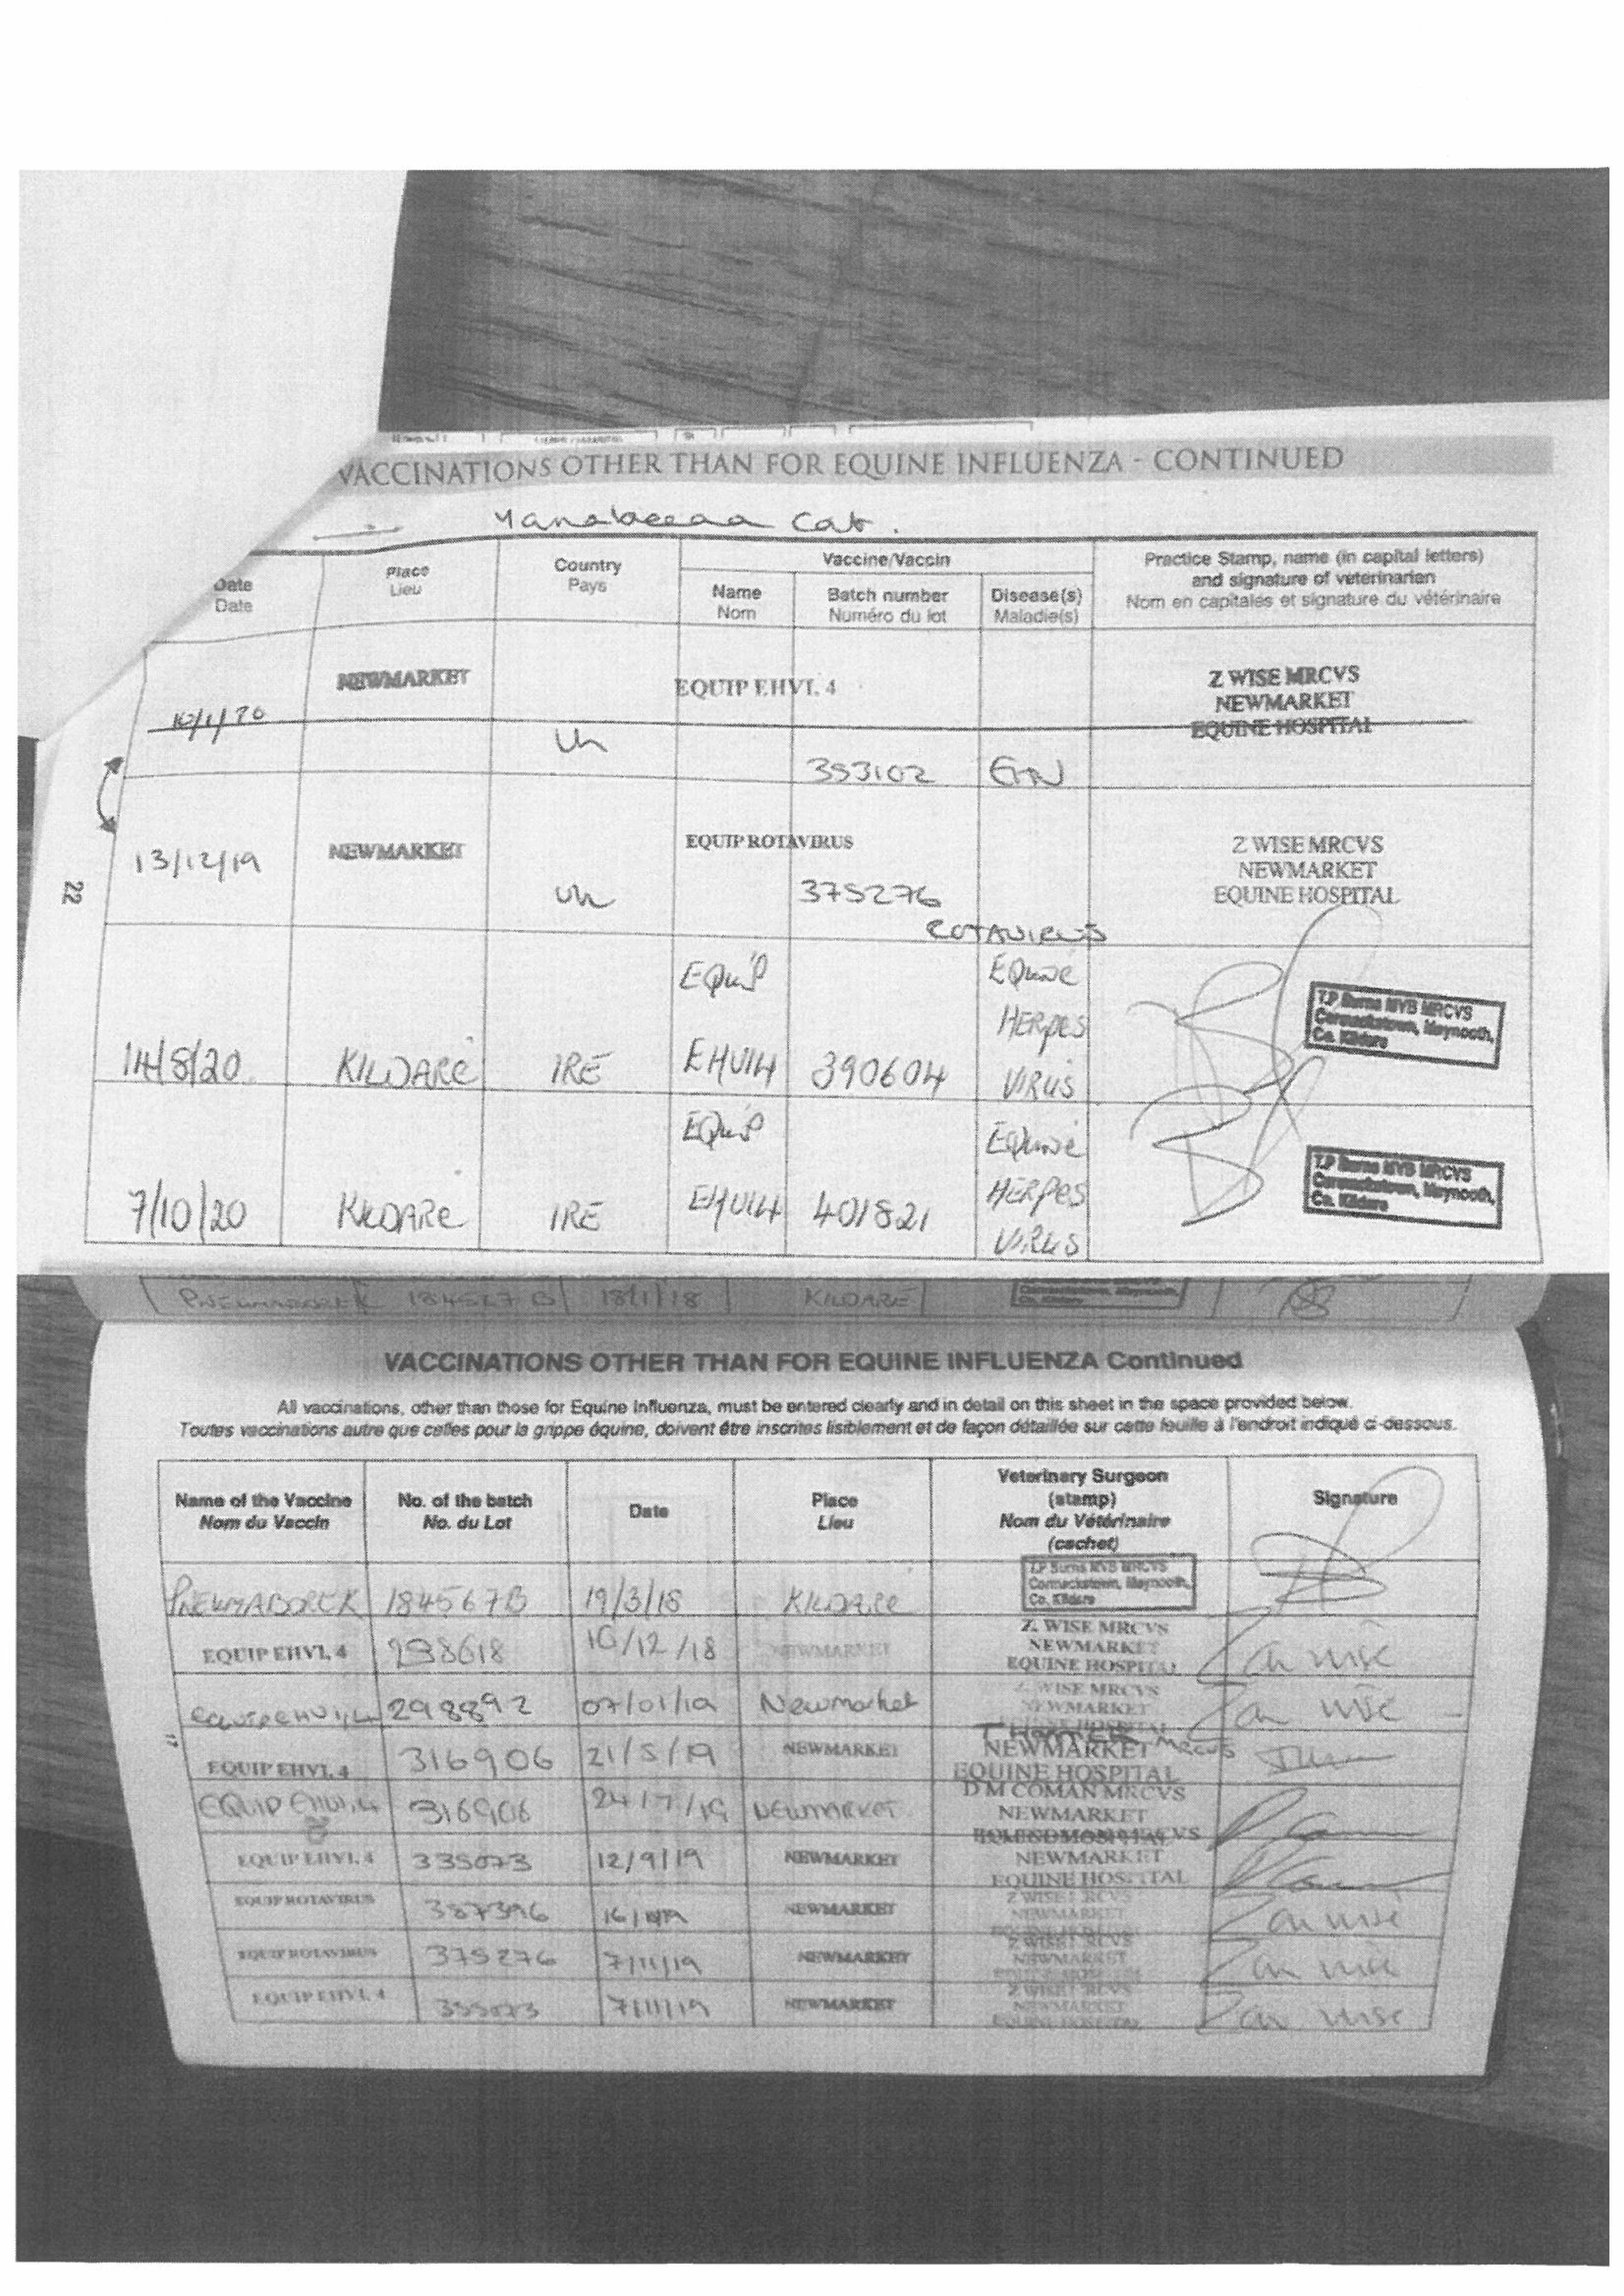 VACCINATIONS OTHER THAN FOR EQUINE INFLUENZA - CONTINUED
Cat.
Date
Date
Place
Lieu
Country
Pays
Vaccine/Vaccin
Name
Nom
Batch number
Numéro du lot
Disease(s)
Maladie(s)
Practice Stamp, name (in capital letters)
and signature of veterinarian
Nom en capitales et signature du vétérinaire
NEWMARKET EQUIP EHV1, 4 Z WISE MRCVS
NEWMARKET
EQUINE HOSPITAL
Uk
353102
13/12/19 NEWMARKET EQUIP ROTAVIRUS Z WISE MRCVS
NEWMARKET
EQUINE HOSPITAL
Uk 375276
ROTAVIRUS
22
EQUIP EQUINE
HERPES
14/8/20 KILDARE IRE EHV14 390604 VIRUS
T.P Burns MVB MRCVS
Cormackstown, Maynooth,
Co. Kildare
EQUIP EQUINE
HERPES
7/10/20 KILDARE IRE EHV14 401821 VIRUS
T.P Burns MVB MRCVS
Cormackstown, Maynooth,
Co. Kildare
PNEWMABOREK 18/1/18 KILDARE
VACCINATIONS OTHER THAN FOR EQUINE INFLUENZA Continued
All vaccinations, other than those for Equine Influenza, must be entered clearly and in detail on this sheet in the space provided below.
Toutes vaccinations autre que celles pour la grippe équine, doivent être inscrites lisiblement et de façon détaillée sur cette feuille à l'endroit indiqué ci-dessous.
Name of the Vaccine
Nom du Vaccin
No. of the batch
No. du Lot
Date
Place
Lieu
Veterinary Surgeon
(stamp)
Nom du Vétérinaire
(cachet)
Signature
PNEWMABOREK 184567B 19/3/18 KILDARE
T.P Burns MVB MRCVS
Cormackstown, Maynooth,
Co. Kildare
EQUIP EHV1, 4 298618 10/12/18 NEWMARKET
Z. WISE MRCVS
NEWMARKET
EQUINE HOSPITAL
Zoe Wise
EQUIP EHV 1,4 298892 07/01/19 Newmarket
Z WISE MRCVS
NEWMARKET
EQUINE HOSPITAL
Zoe Wise
EQUIP EHV1, 4 316906 21/5/19 NEWMARKET
MRCVS
NEWMARKET
EQUINE HOSPITAL
EQUIP EHV1,4 316906 24/7/19 NEWMARKET
D M COMAN MRCVS
NEWMARKET
EQUIP EHV1, 4 335073 12/9/19 NEWMARKET
NEWMARKET
EQUINE HOSPITAL
EQUIP ROTAVIRUS NEWMARKET
Z WISE MRCVS
NEWMARKET
Zoe Wise
EQUIP ROTAVIRUS 375276 7/11/19 NEWMARKET
Z WISE MRCVS
NEWMARKET
Zoe Wise
EQUIP EHV1, 4 7/11/19 NEWMARKET
Z WISE MRCVS
NEWMARKET
EQUINE HOSPITAL
Zoe Wise